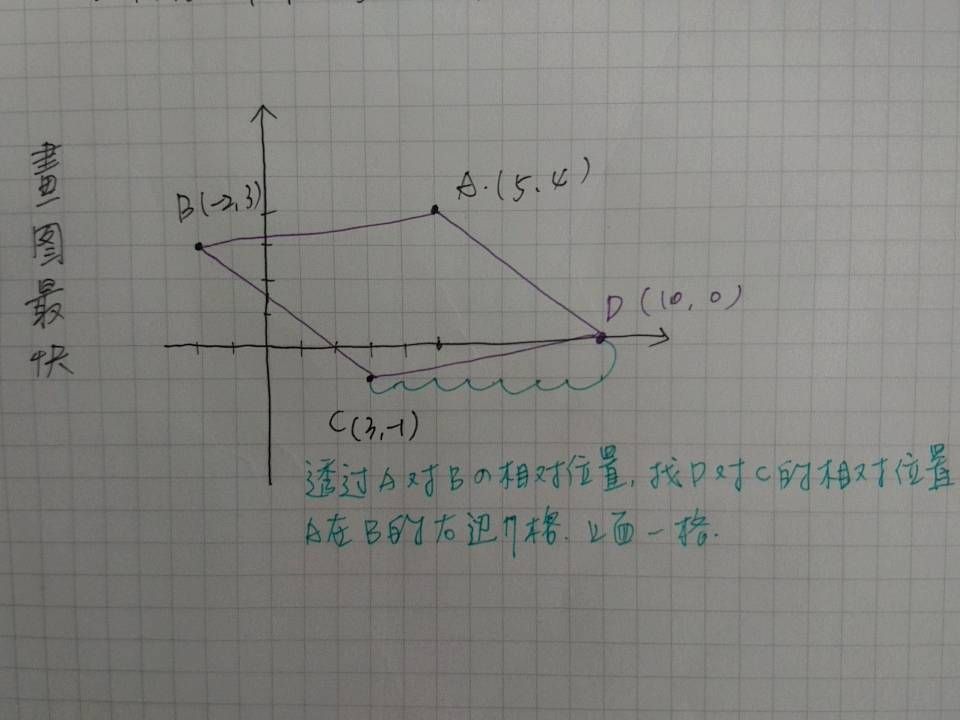 畫圖最快
B(-2,3)
A.(5.4)
D(10,0)
C(3,-1)
透过A对Bの相对位置,找D对C的相对位置
A在B的右边7格.上面一格.